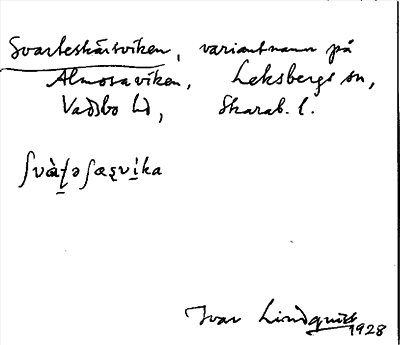 Svarteskärsviken, variantnamn på
Almosaviken, Leksbergs sn,
Vadsbo hd, Skarab. l.
ʃvàʈəʃæʂvika
Ivar Lindquist
1928